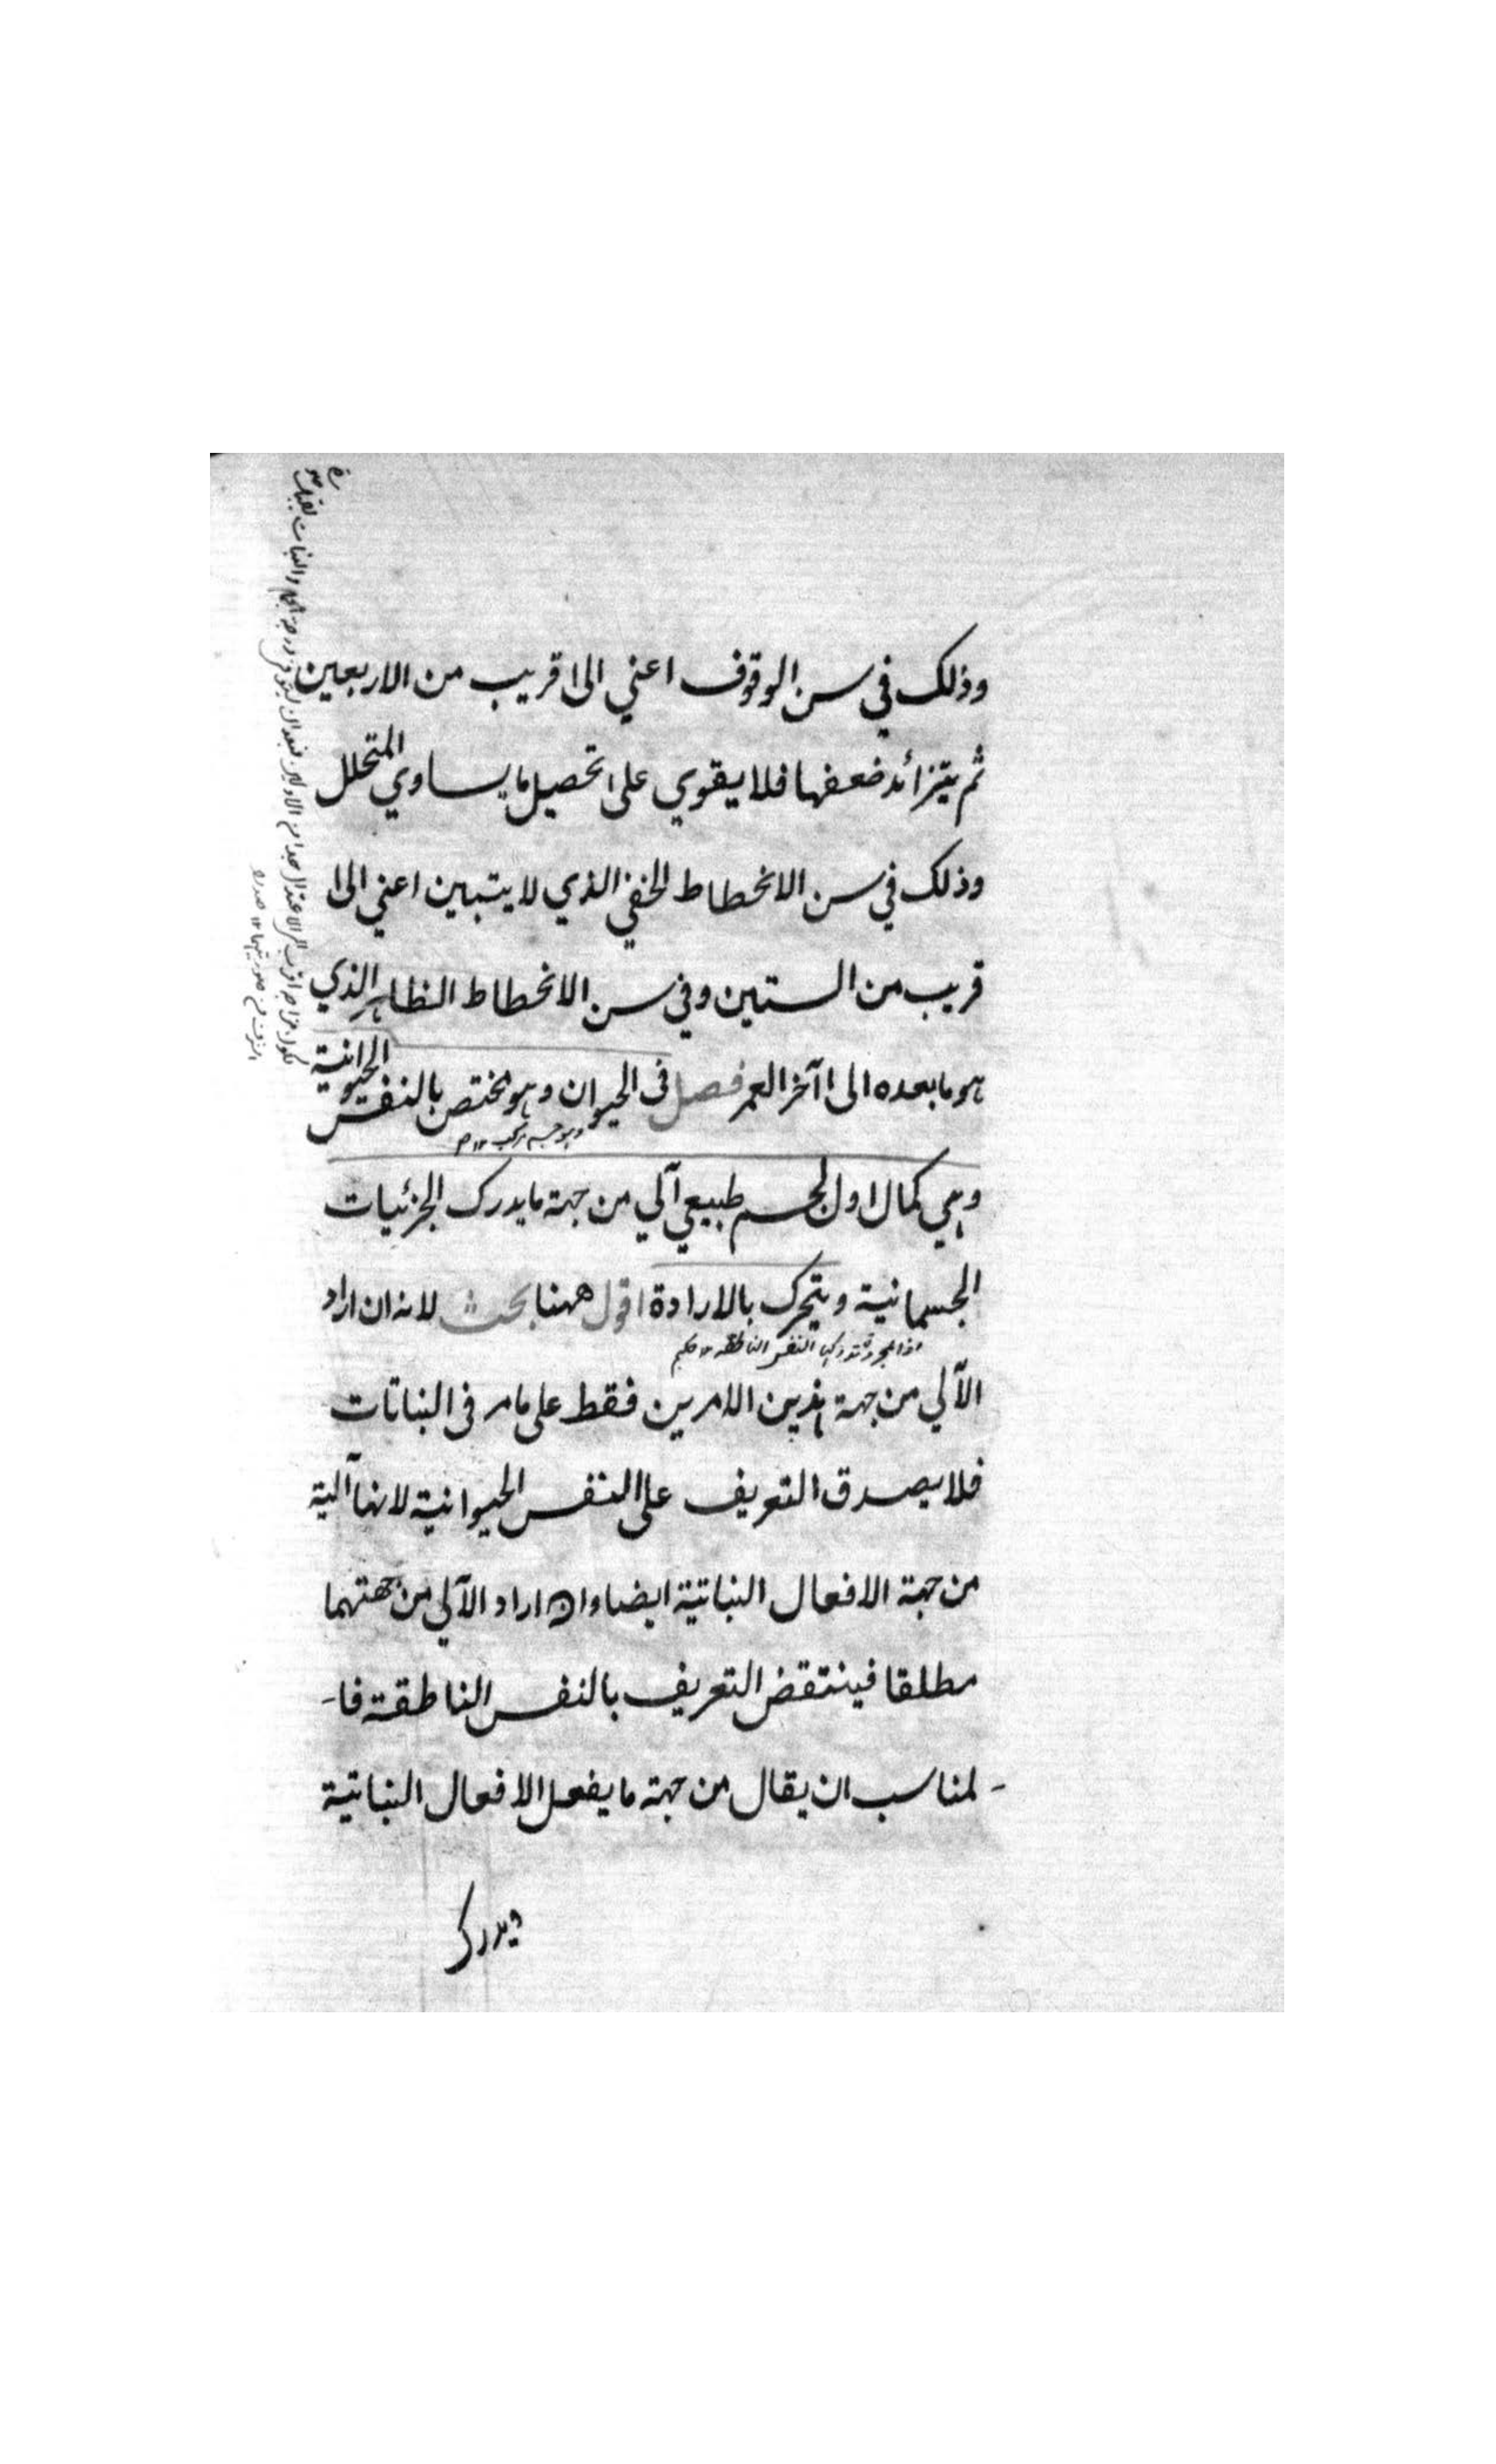 وذلك في سن الوقوف اعني الى قريب من الاربعين
ثم يتزائد ضعفها فلا يقوي على تحصيل ما يساوي المتحلل
وذلك في سن الانحطاط الخفي الذي لا يتبين اعني الى
قريب من الستين وفي سن الانحطاط الظاهر الذي
هو ما بعده الى آخر العمر فصل فى الحيوان وهو مختص بالنفس الحيوانية
وهو جسم مركب ١٢ م
وهي كمال اول لجسم طبيعي آلي من جهة ما يدرك الجزئيات
الجسمانية ويتحرك بالارادة اقول ههنا بحث لانه ان اراد
النفس الناطقة ١٢
الآلي من جهة هذين الامرين فقط على ما مر فى النباتات
فلا يصدق التعريف على النفس الحيوانية لانها آلية
من جهة الافعال النباتية ايضا وان اراد الآلي من جهتهما
مطلقا فينتقض التعريف بالنفس الناطقة فا-
-لمناسب ان يقال من جهة ما يفعل الافعال النباتية
ويدرك